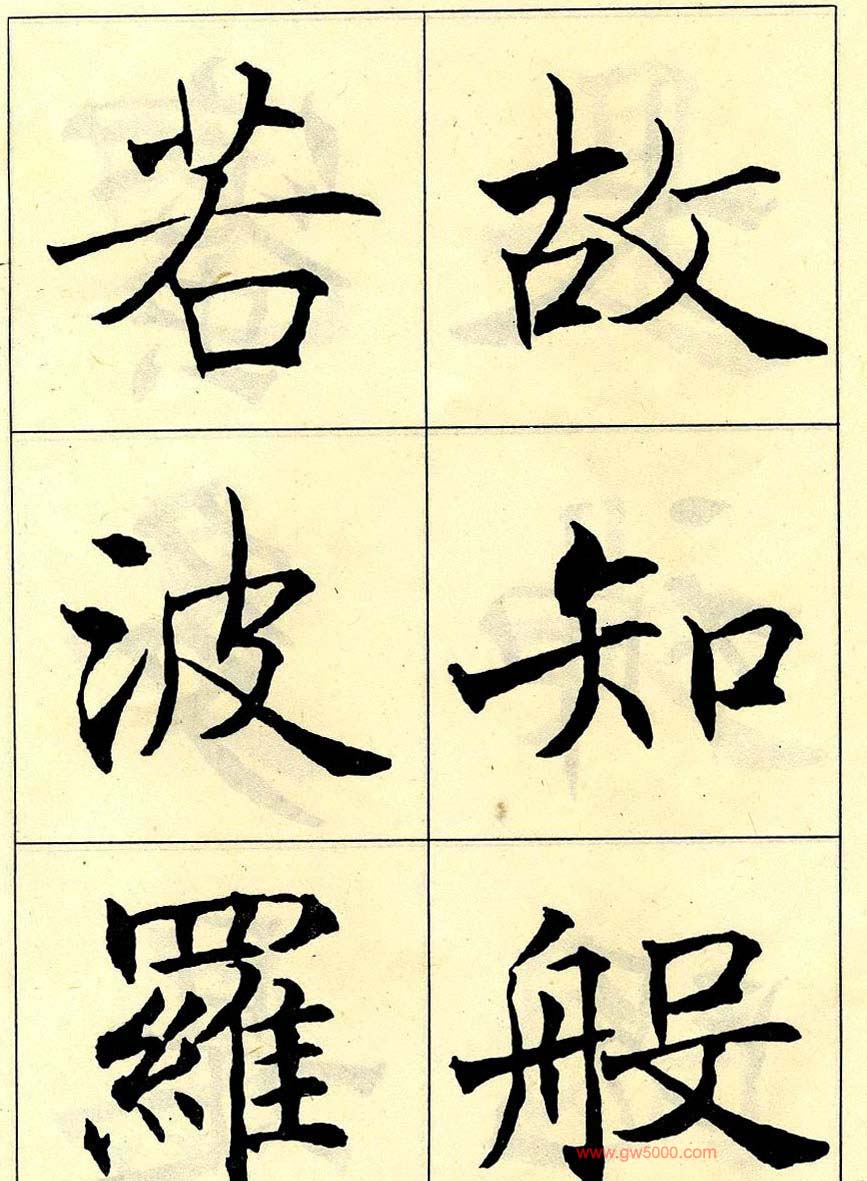 故知般
若波羅
www.gw5000.com